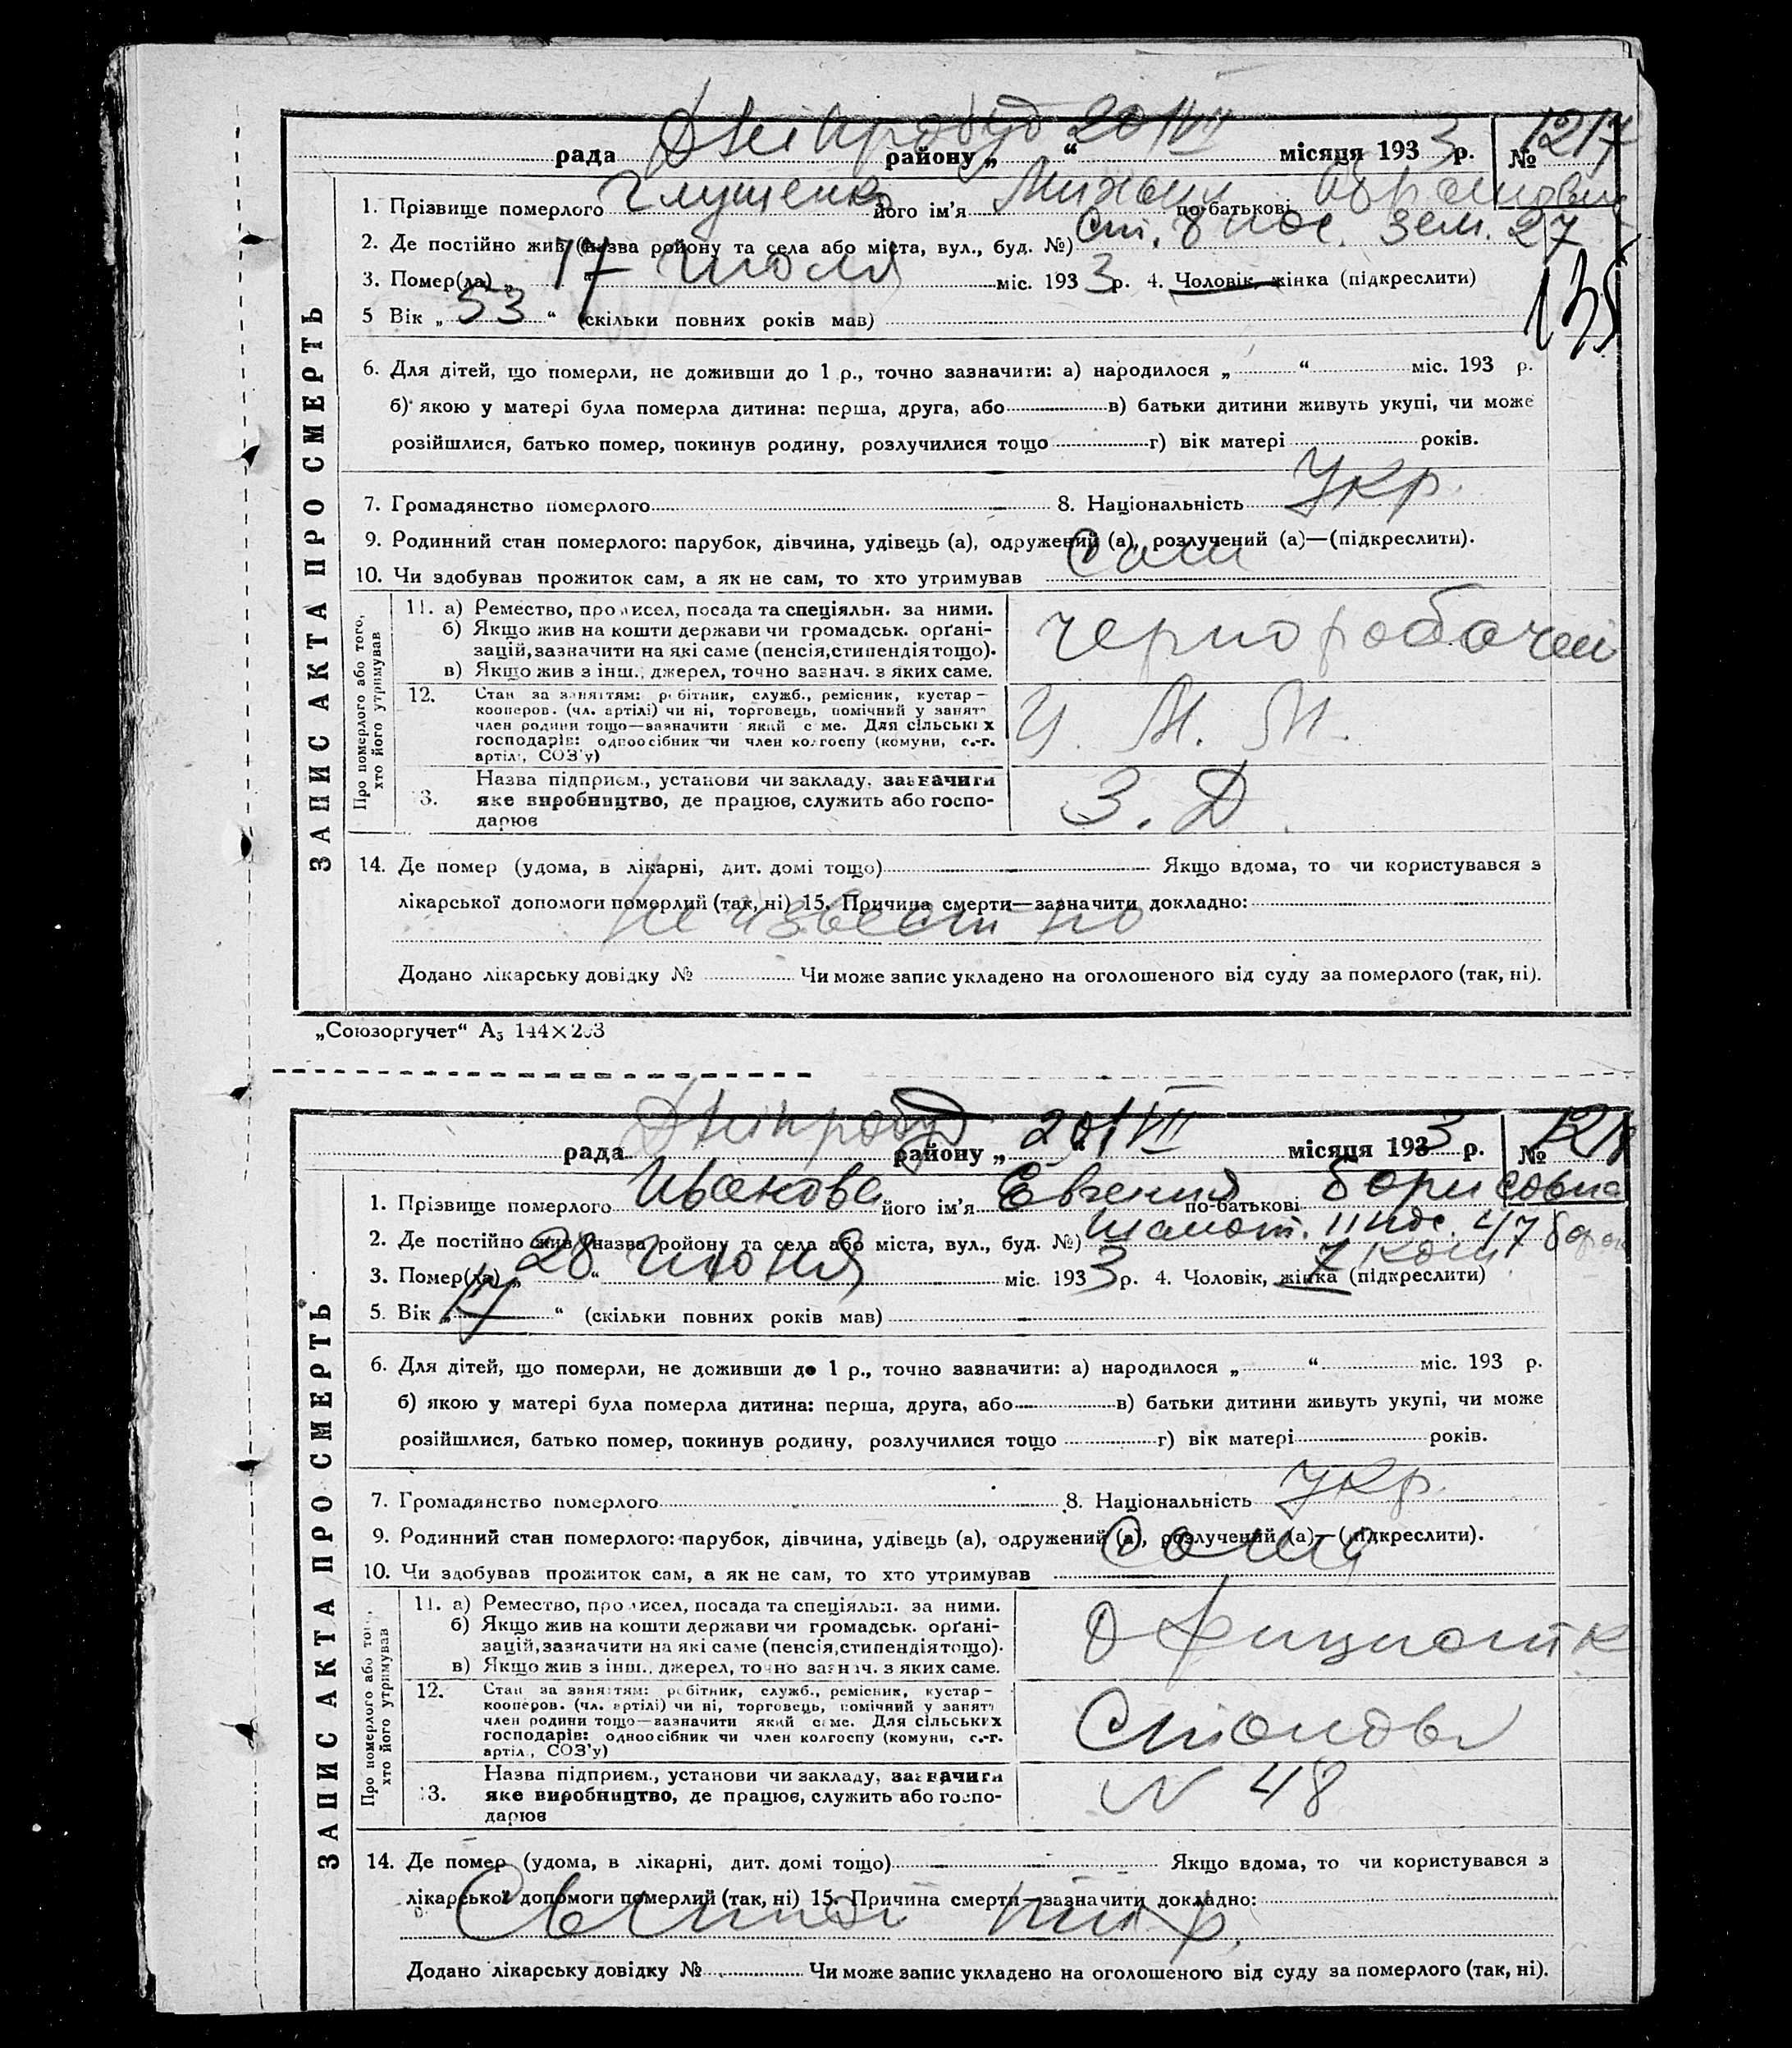 рада Дніпробуд району „ 20/VII “ місяця 1933 р. № 1217
1. Прізвище померлого Глущенко його ім'я Михаил по-батькові Абрамович
2. Де постійно жив (назва ройону та села або міста, вул., буд. №) 8 пос. зем. 27
3. Помер(ла) „ 17 “ июля міс. 1933 р. 4. Чоловік, жінка (підкреслити)
135
5 Вік „ 53 “ (скільки повних років мав)
6. Для дітей, що померли, не доживши до 1 р., точно зазначити: а) народилося „ “ міс. 193 р.
б) якою у матері була померла дитина: перша, друга, або в) батьки дитини живуть укупі, чи може
розійшлися, батько помер, покинув родину, розлучилися тощо г) вік матері років.
7. Громадянство померлого 8. Національність Укр.
9. Родинний стан померлого: парубок, дівчина, удівець (а), одружений (а), розлучений (а)—(підкреслити).
10. Чи здобував прожиток сам, а як не сам, то хто утримував Сам
ЗАПИС АКТА ПРО СМЕРТЬ
Про померлого або того,
хто його утримував
11. а) Ремество, промисел, посада та спеціяльн. за ними.
б) Якщо жив на кошти держави чи громадськ. орґані-
зацій, зазначити на які саме (пенсія, стипендія тощо).
в) Якщо жив з інш. джерел, точно зазнач. з яких саме.
чернорабочей
12. Стан за заняттям: робітник, служб., ремісник, кустар—
кооперов. (чл. артілі) чи ні, торговець, помічний у занятт
член родини тощо—зазначити який саме. Для сільських
господарів: одноосібник чи член колгоспу (комуни, с.-г.
артіл., СОЗ'у)
13. Назва підприєм., установи чи закладу, зазначити
яке виробництво, де працює, служить або госпо-
дарює
З. Д.
14. Де помер (удома, в лікарні, дит. домі тощо) Якщо вдома, то чи користувався з
лікарської допомоги померлий (так, ні) 15. Причина смерти—зазначити докладно:
Неизвестно
Додано лікарську довідку № Чи може запис укладено на оголошеного від суду за померлого (так, ні).
„Союзоргучет“ А₅ 144×203
рада Дніпробуд району „ 20/VII “ місяця 1933 р. № 1218
1. Прізвище померлого Иванова його ім'я Евгения по-батькові Борисовна
2. Де постійно жив (назва ройону та села або міста, вул., буд. №) Шамот. 11 пос. 47 бара
7 ком
3. Помер(ла) „ 28 “ июня міс. 1933 р. 4. Чоловік, жінка (підкреслити)
5. Вік „ 17 “ (скільки повних років мав)
6. Для дітей, що померли, не доживши до 1 р., точно зазначити: а) народилося „ “ міс. 193 р.
б) якою у матері була померла дитина: перша, друга, або в) батьки дитини живуть укупі, чи може
розійшлися, батько помер, покинув родину, розлучилися тощо г) вік матері років.
7. Громадянство померлого 8. Національність Укр.
9. Родинний стан померлого: парубок, дівчина, удівець (а), одружений (а), розлучений (а)—(підкреслити).
10. Чи здобував прожиток сам, а як не сам, то хто утримував Сама
ЗАПИС АКТА ПРО СМЕРТЬ
Про померлого або того,
хто його утримував
11. а) Ремество, промисел, посада та спеціяльн. за ними.
б) Якщо жив на кошти держави чи громадськ. орґані-
зацій, зазначити на які саме (пенсія, стипендія тощо).
в) Якщо жив з інш. джерел, точно зазнач. з яких саме.
Официантк
12. Стан за заняттям: робітник, служб., ремісник, кустар—
кооперов. (чл. артілі) чи ні, торговець, помічний у занятт
член родини тощо—зазначити який саме. Для сільських
господарів: одноосібник чи член колгоспу (комуни, с.-г.
артіл., СОЗ'у)
Столова
13. Назва підприєм., установи чи закладу, зазначити
яке виробництво, де працює, служить або госпо-
дарює
N 48
14. Де помер (удома, в лікарні, дит. домі тощо) Якщо вдома, то чи користувався з
лікарської допомоги померлий (так, ні) 15. Причина смерти—зазначити докладно:
тиф.
Додано лікарську довідку № Чи може запис укладено на оголошеного від суду за померлого (так, ні).